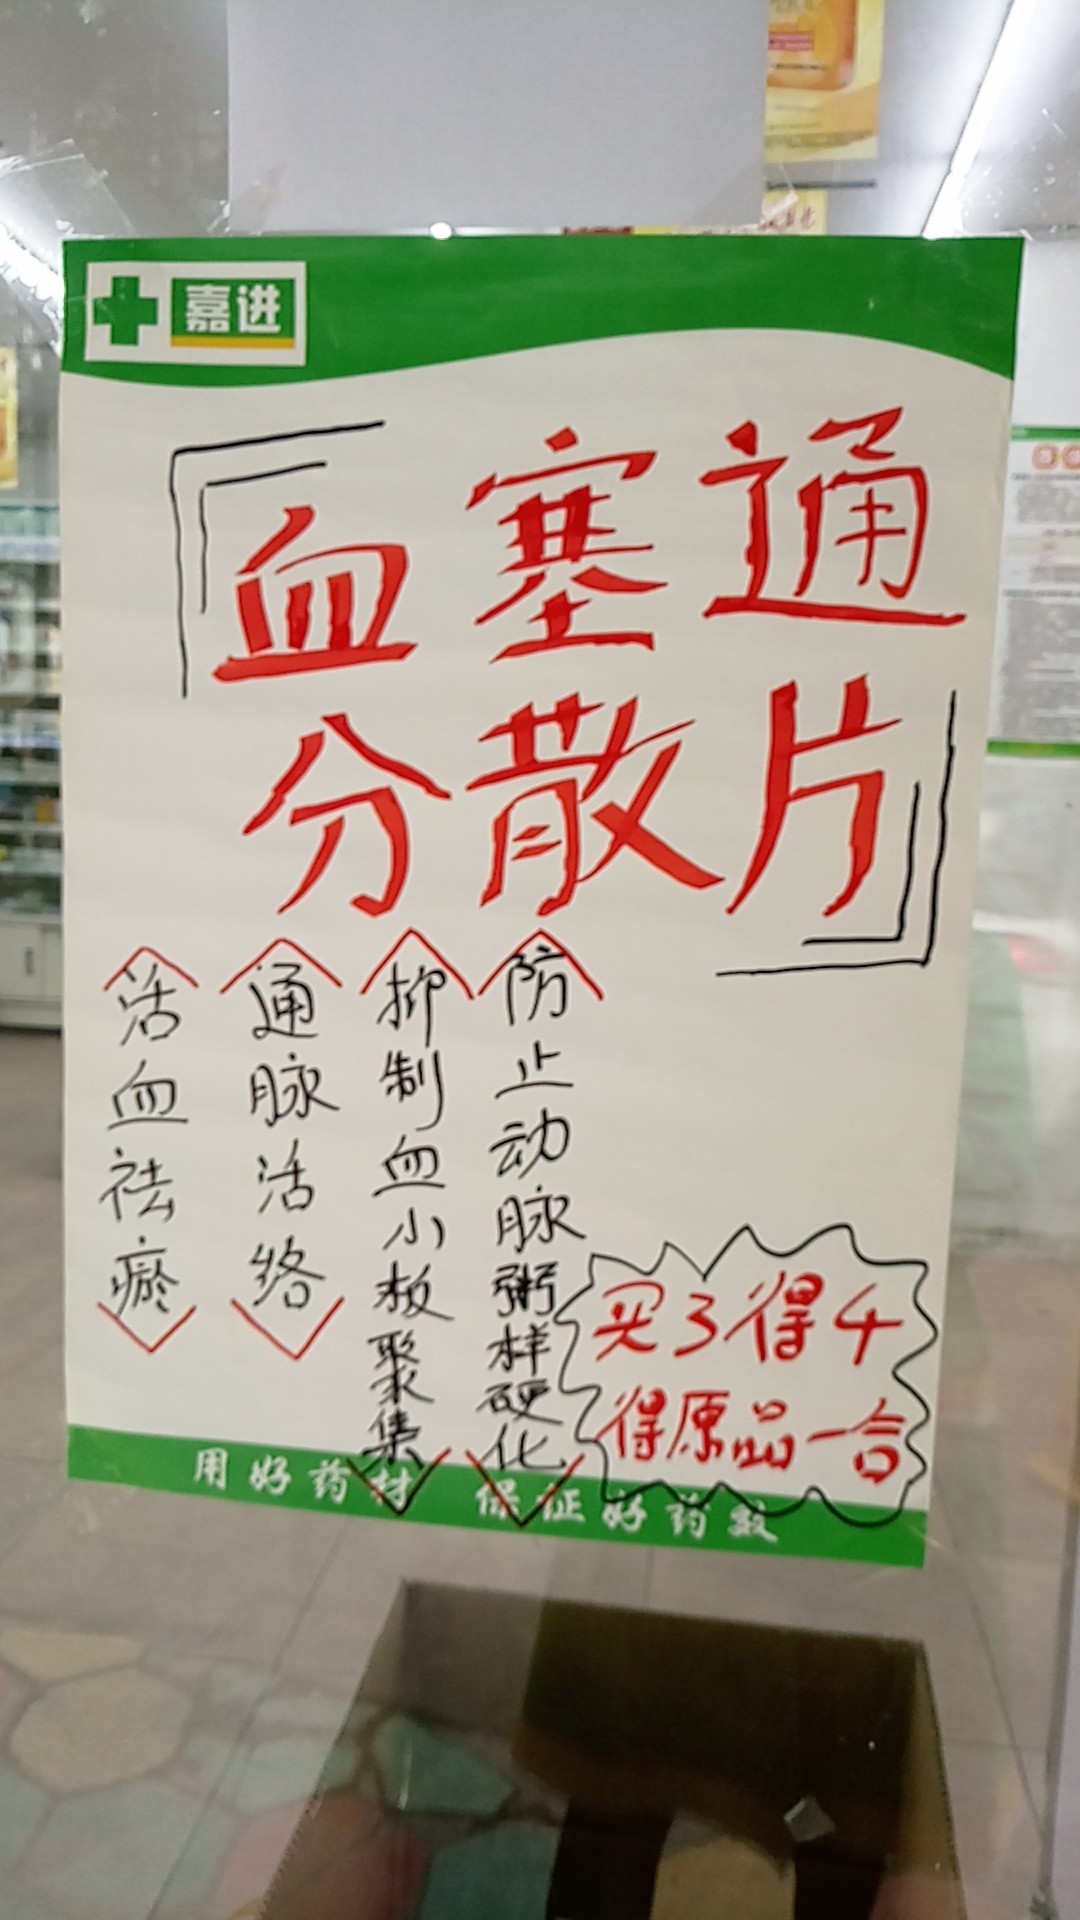 嘉进
血塞通
分散片
活血祛瘀
通脉活络
抑制血小板聚集
防止动脉粥样硬化
买3得4
得原品一合
用好药材 保证好药效